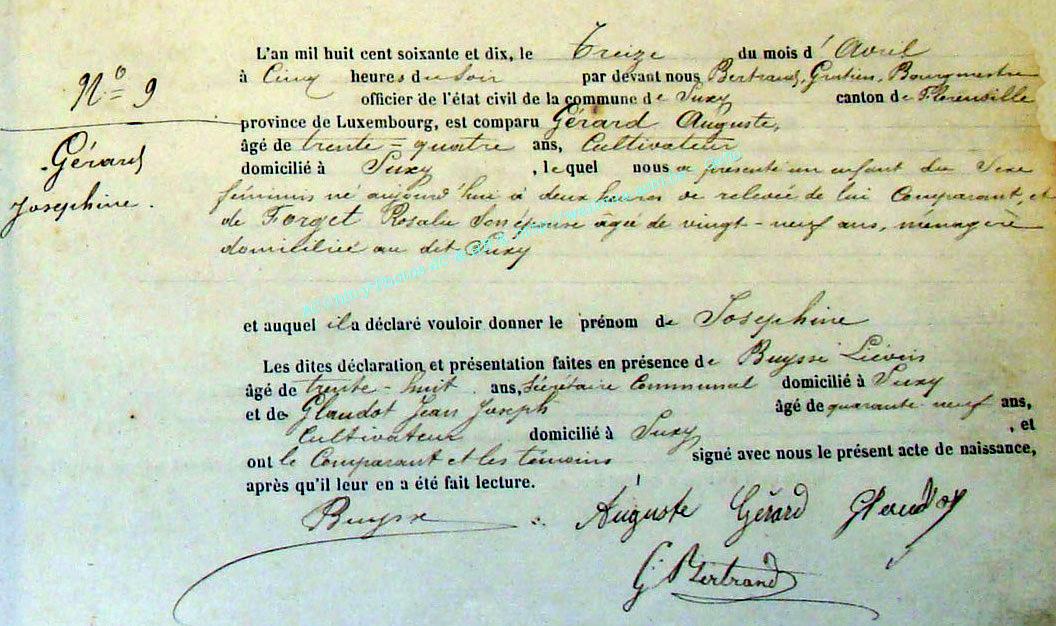 Nº = 9
Gérard
Joséphine.
L'an mil huit cent soixante et dix, le Treize du mois d' Avril
à Cinq heures du Soir par devant nous Bertrand, Gratien, Bourgmestre
officier de l'état civil de la commune de Suxy canton de Florenville
province de Luxembourg, est comparu Gérard Auguste,
âgé de trente = quatre ans, Cultivateur
domicilié à Suxy , lequel nous a présenté un enfant du Sexe
féminin né aujourd'hui à deux heures de relevée de lui Comparant, et
de Forget Rosalie Son épouse âgée de vingt-neuf ans, ménagère
domiciliée au dit Suxy
et auquel il a déclaré vouloir donner le prénom de Joséphine
Les dites déclaration et présentation faites en présence de Buysse Liévin
âgé de trente-huit ans, Sécrétaire Communal domicilié à Suxy
et de Glaudot Jean Joseph âgé de quarante neuf ans,
Cultivateur domicilié à Suxy , et
ont le Comparant et les témoins signé avec nous le présent acte de naissance,
après qu'il leur en a été fait lecture.
Buysse Auguste Gérard Glaudot
G. Bertrand